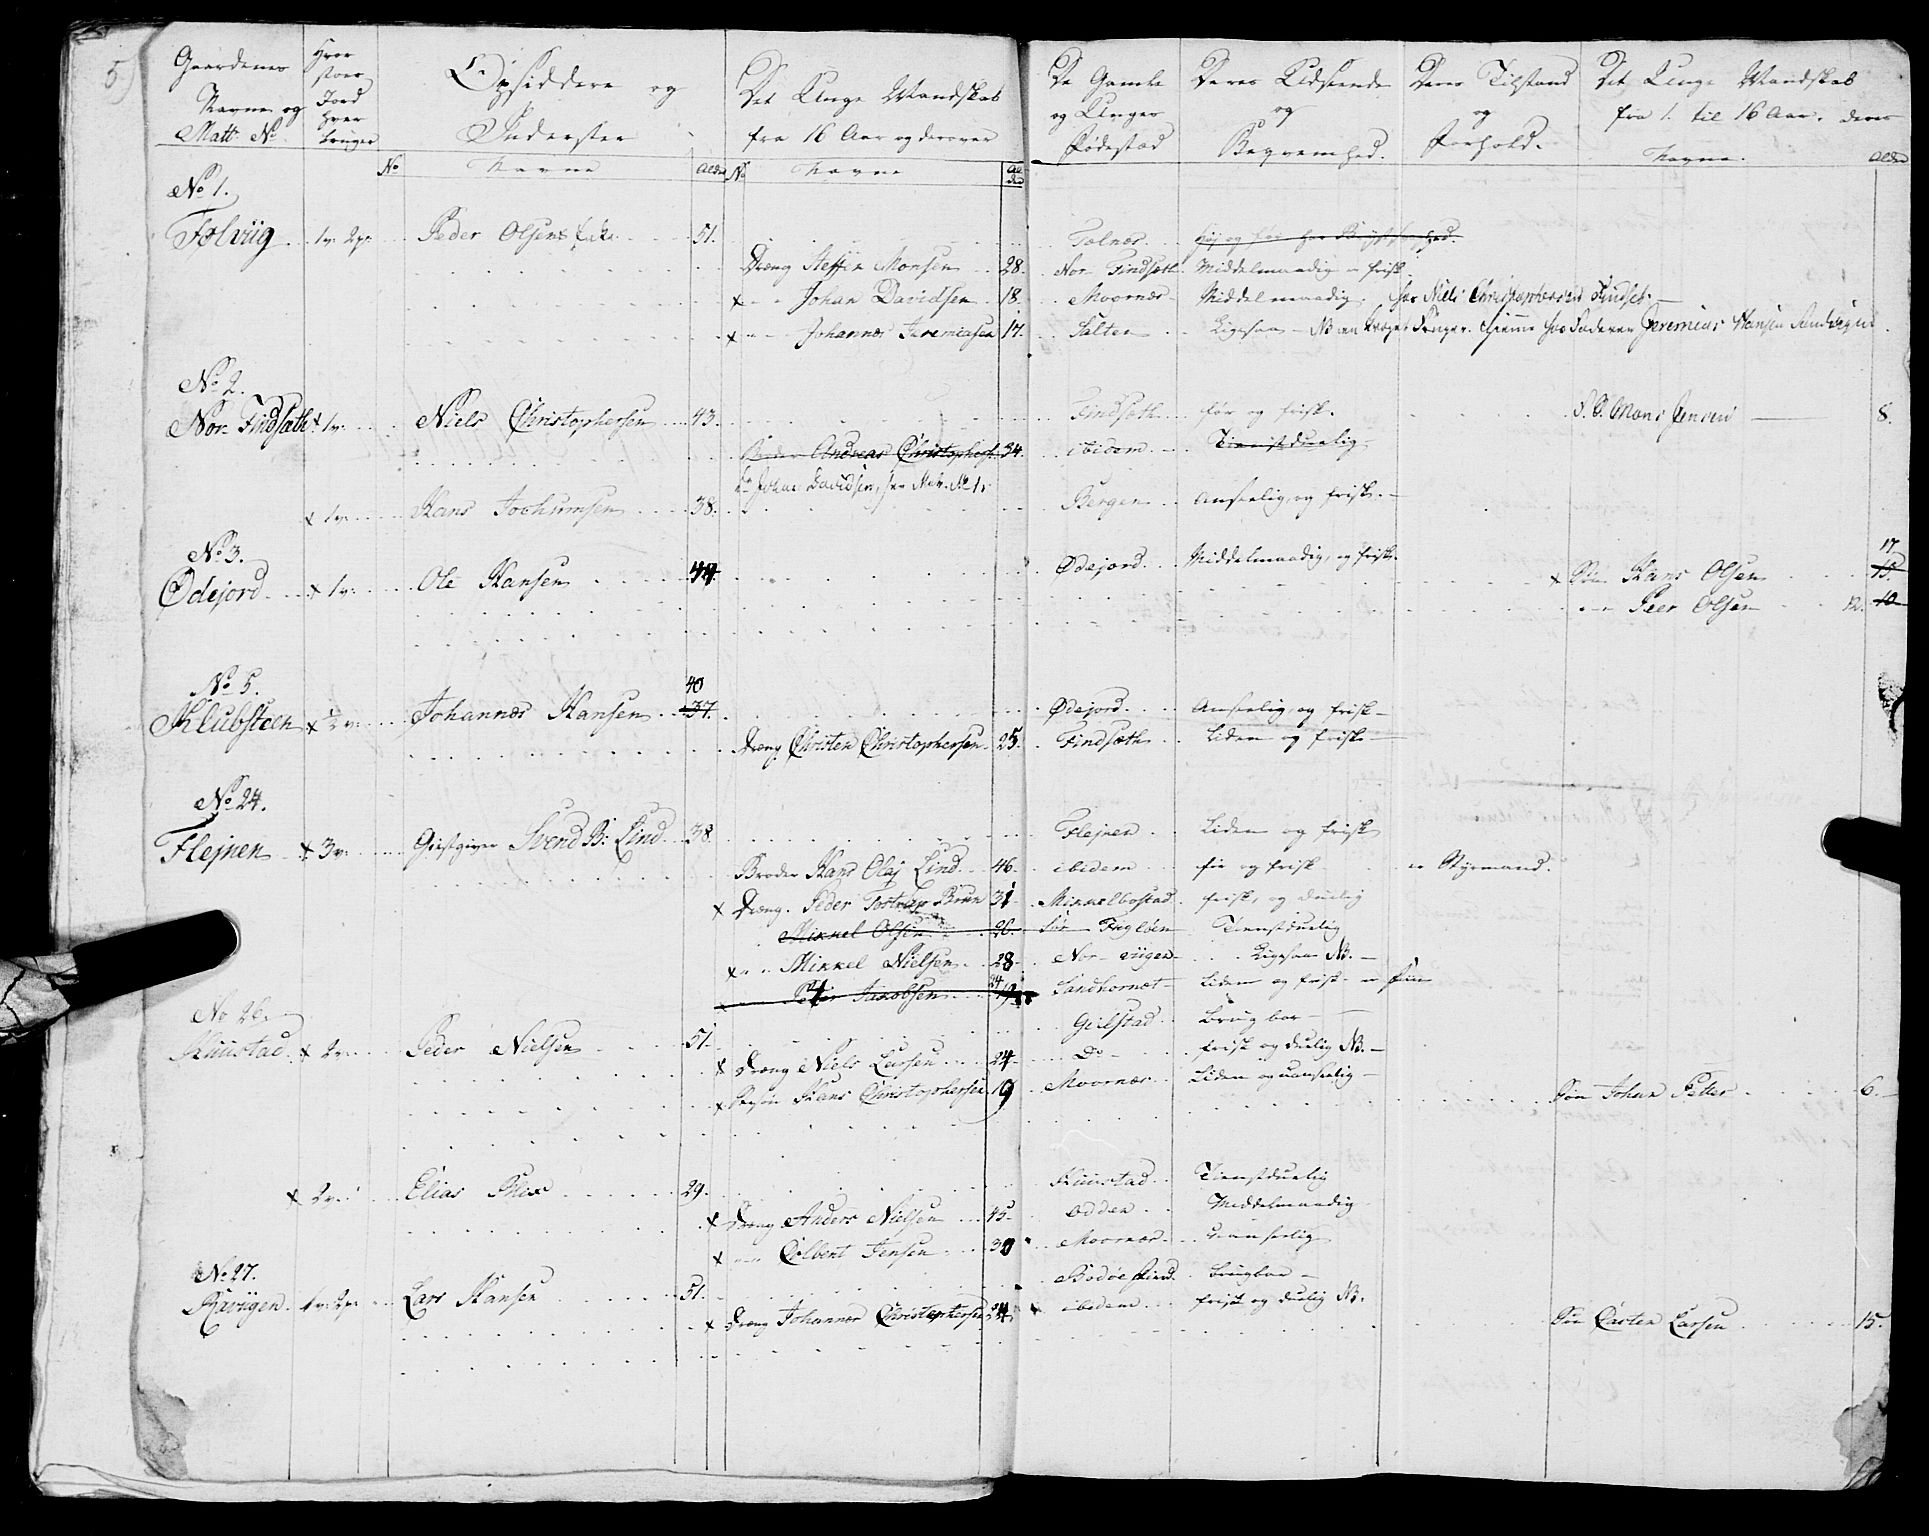 5)
Gaardenes Navne og Matt: No. | Hvor stoer Jord hver bruger | Opsiddere og Inderster | Det Unge Mandskab fra 16 Aar og derover | De Gamle og Unges Fødestad | Deres Udseende og Beqvemhed. | Deres Tilstand og Forhold. | Det Unge Mandskab fra 1. til 16 Aar. deres
No | Navne | Alder | No | Navne | Alder | Navne. | Alder
No 1.
Folviig 1v: 2p: Peder Olsen 51. Folnæs
Dreng Steffen Monsen 28. Nor Findsæth Middelmaadig frisk
x Johan Davidsen 18. Moornæs Middelmaadig. hos Niels Christophersen Findset
x Johannes Jeremiasen 17. Salten Ligesaa NB en hjemme hos Faderen Jeremias Hansen
No 2.
Nor Findsæth x 1v: Niels Christophersen 43. Findsæth før og frisk. Mons Jensen 8.
Broder Andreas Christophers: 34. ibidem Tienstduelig
Johan Davidsen, see No 1.
x 1v: Hans Jochumsen 38. Bergen Anseelig, og frisk.
No 3.
Ødejord x 1v: Ole Hansen 44. Ødejord Middelmaadig, og frisk. x Søn Hans Olsen 15. 17
Peer Olsen 12. 10
No 5.
Klubsteen x ½ v: Johannes Hansen 37. 40 Ødejord Anseelig, og frisk
Dreng Christen Christophersen 25. Findsæth Liden og frisk
No 24.
Flejnen x 3v: Giestgiver Svend B: Lind 38. Flejnen Liden og frisk
Broder Hans Olaj Lind 46. ibidem før og frisk er Styrmand.
x Dreng Peder Tostrup Brun 31 Mikkelbostad frisk, og duelig
Mikkel Olsen 26. Sør Fugløen Tienstduelig
x Mikkel Nielsen 28 Nor Ligesaa NB.
Peter Jacobsen 19 24 Sandhornet Liden og frisk
No 26.
Skiustad x 2v: Peder Nielsen 51. Gielstad Brugbar
x Dreng Niels Larsen 24 Do frisk og duelig NB.
x Hans Christophersen 19 Moornæs Liden og uanseelig
Søn Johan Petter 6.
x 2v: Elias 29. Skiustad Tienstduelig
x Dreng Anders Nielsen 45 Odden Middelmaadig
x Colbent Jensen 30 Moornæs uanseelig
No 27.
Ravigen 1v: 2p: Lars Hansen 51. Bodøe Brugbar
x Dreng Johannes Christophersen 24 ibidem frisk og duelig NB.
Søn Carten Larsen 15.